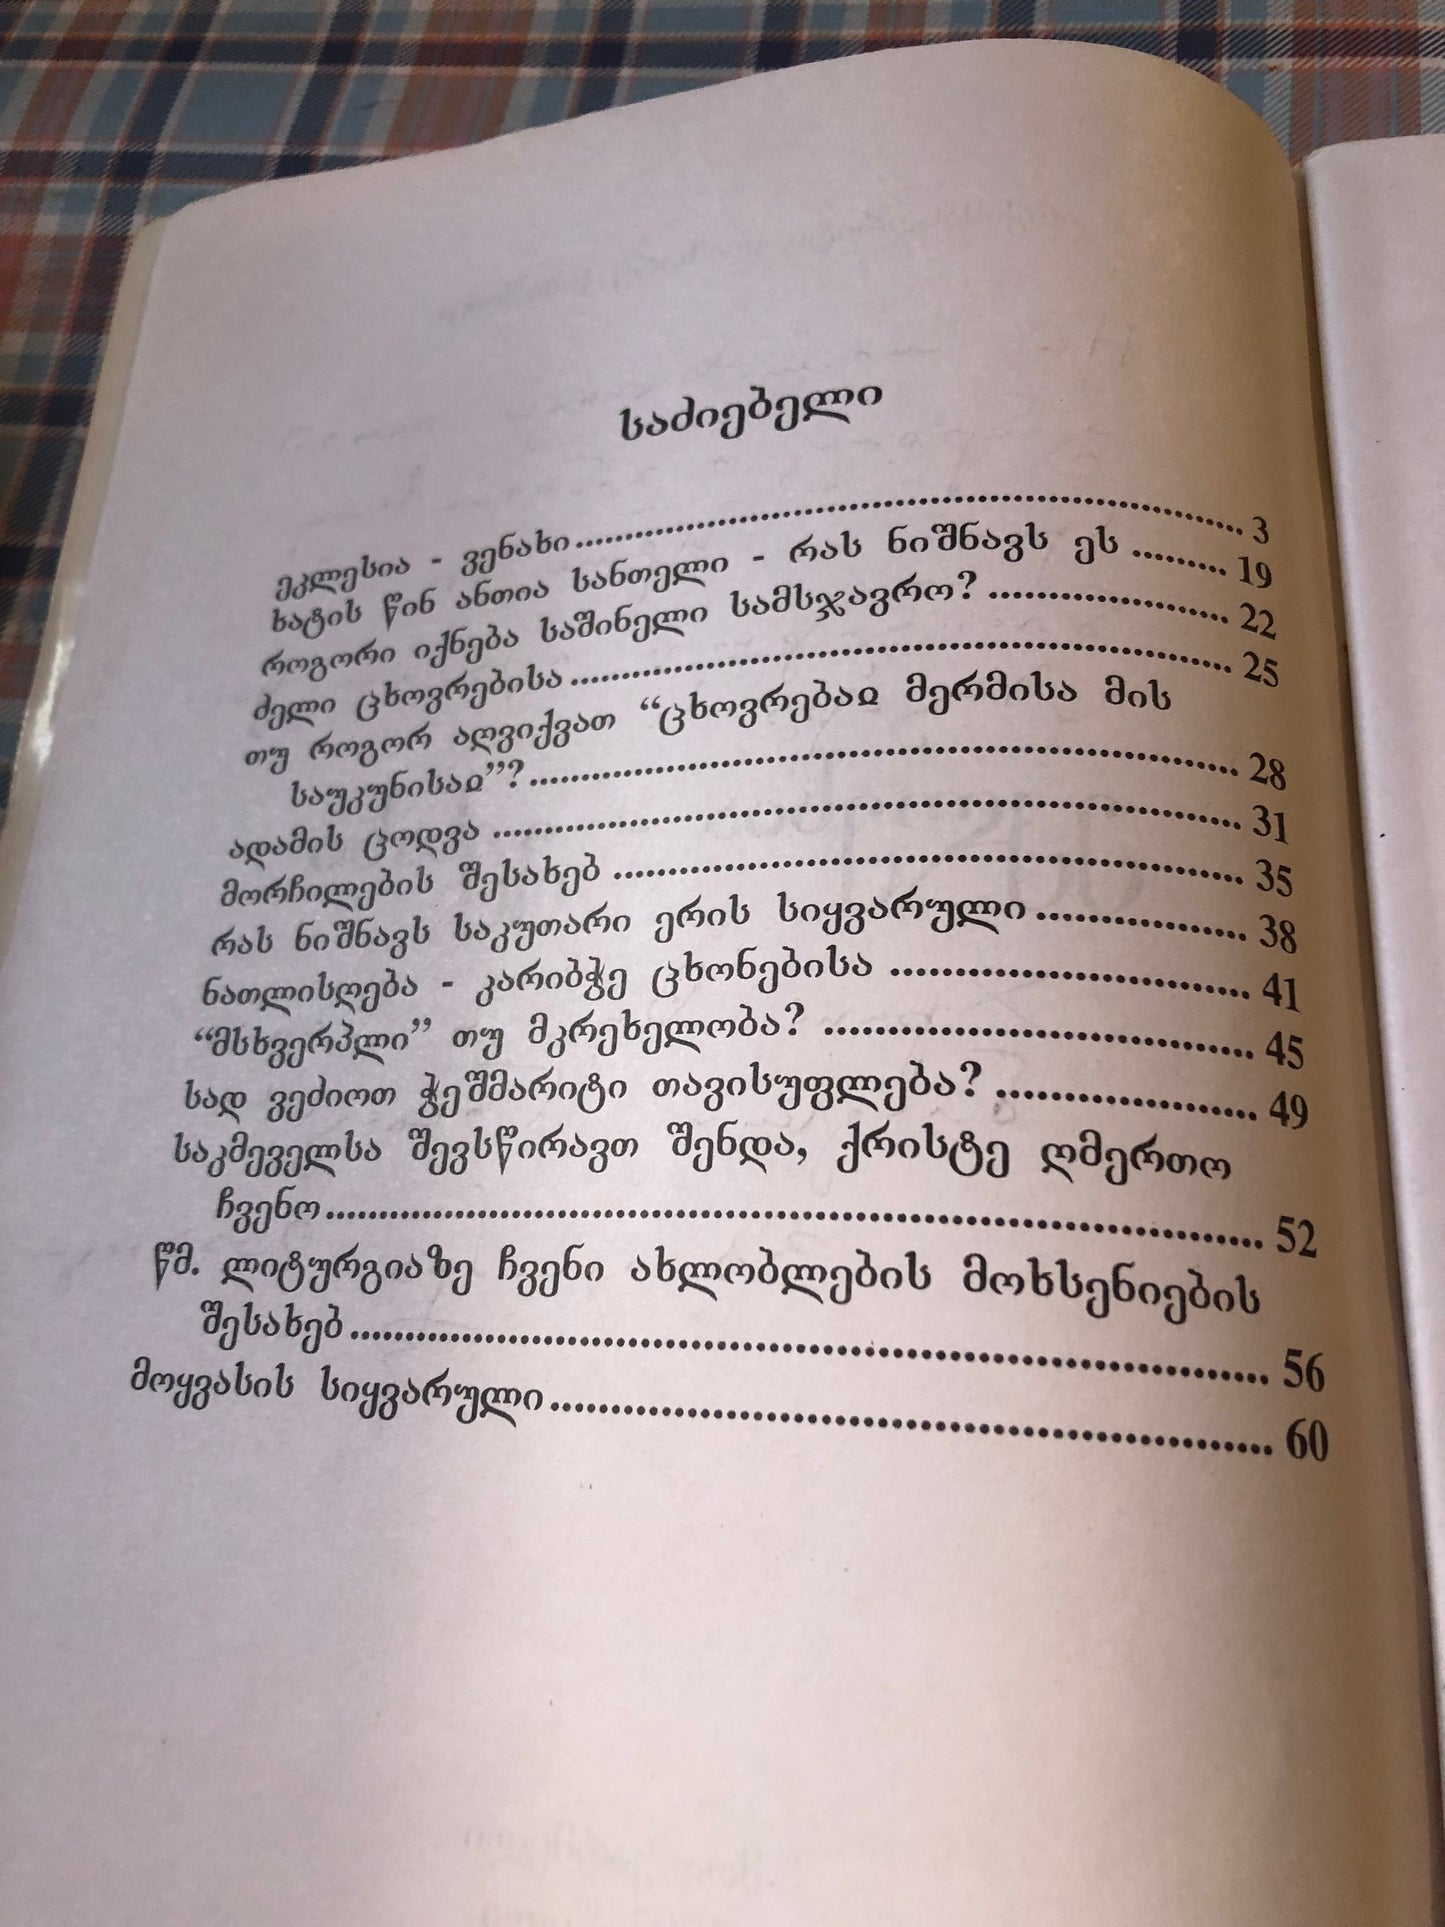 საძიებელი
ეკლესია - ვენახი 3
ხატის წინ ანთია სანთელი - რას ნიშნავს ეს 19
როგორი იქნება საშინელი სამსჯავრო? 22
ძელი ცხოვრებისა 25
თუ როგორ აღვიქვათ “ცხოვრებაჲ მერმისა მის
საუკუნისაჲ”? 28
ადამის ცოდვა 31
მორჩილების შესახებ 35
რას ნიშნავს საკუთარი ერის სიყვარული 38
ნათლისღება - კარიბჭე ცხონებისა 41
“მსხვერპლი” თუ მკრეხელობა? 45
სად ვეძიოთ ჭეშმარიტი თავისუფლება? 49
საკმეველსა შევსწირავთ შენდა, ქრისტე ღმერთო
ჩვენო 52
წმ. ლიტურგიაზე ჩვენი ახლობლების მოხსენიების
შესახებ 56
მოყვასის სიყვარული 60